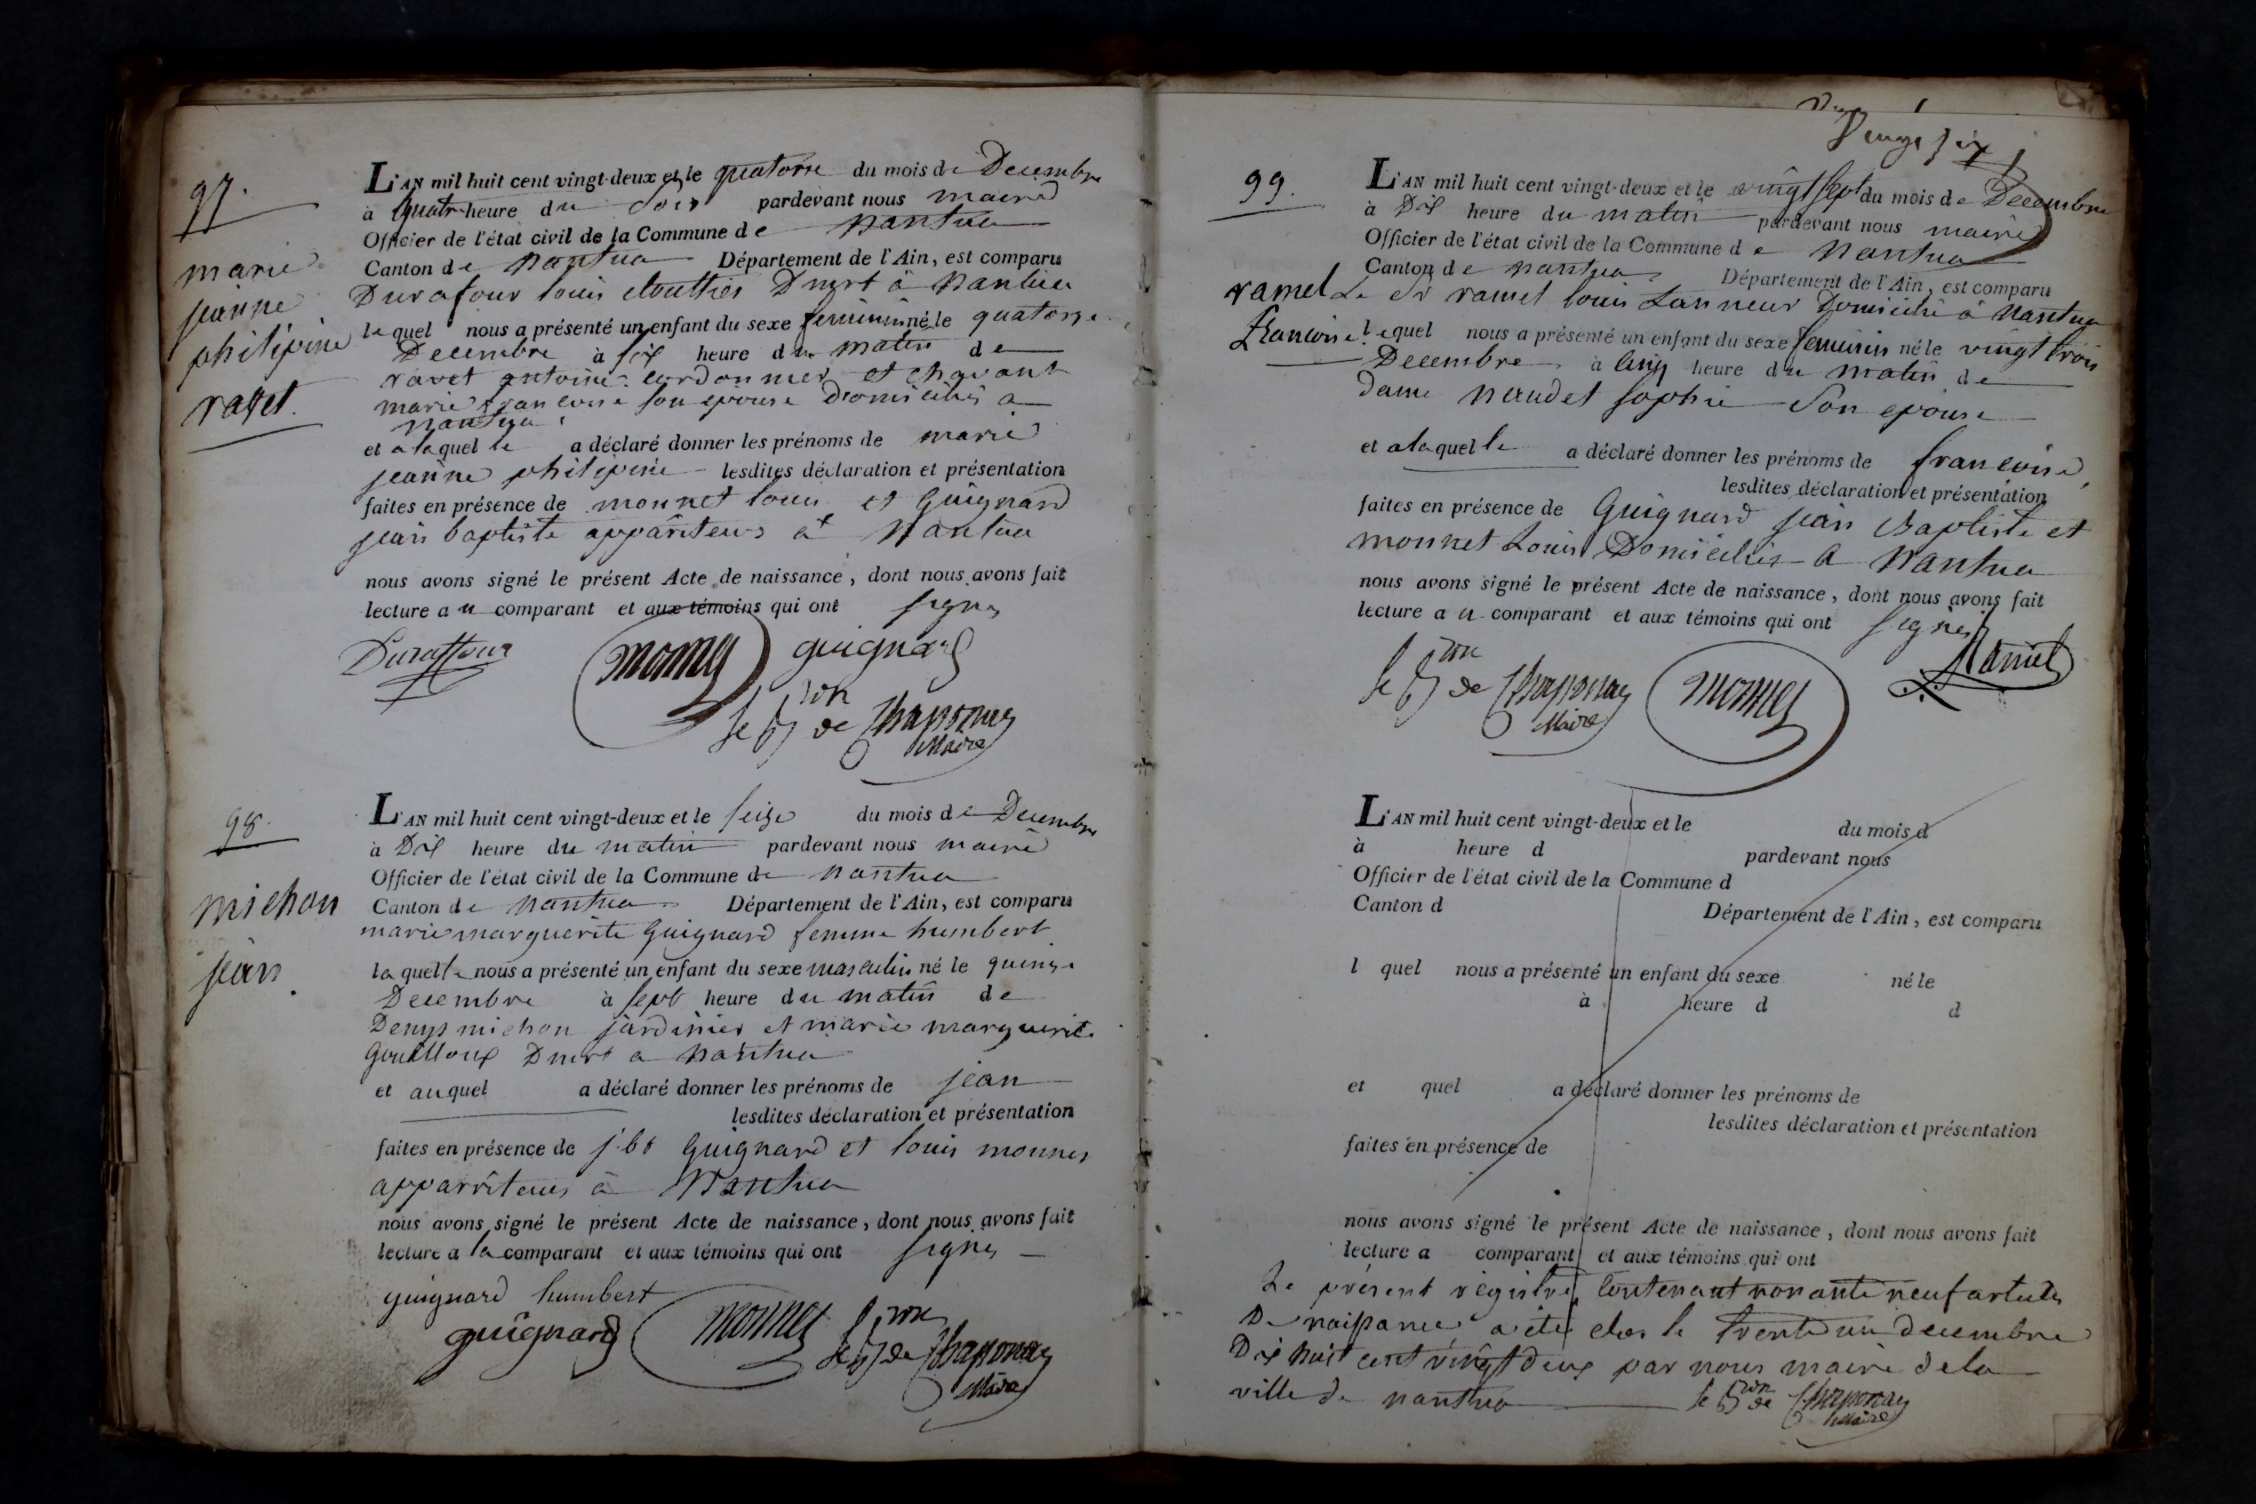 97.
marie
jeanne
philipine
ravet.
L'AN mil huit cent vingt-deux et le quatorze du mois de Decembre
à quatre heure du Soir pardevant nous maire
Officier de l'état civil de la Commune de Nantua
Canton de Nantua Département de l'Ain, est comparu
Durafour louis Dmrt à Nantua
lequel nous a présenté un enfant du sexe feminin né le quatorze
Decembre à six heure du matin de
ravet antoine cordonnier et chavant
marie francoise son epouse Domiciliés a
nantua
et a laquelle a déclaré donner les prénoms de marie
jeanne philipine lesdites déclaration et présentation
faites en présence de monnet louis et Guignard
jean baptiste appariteurs à Nantua
nous avons signé le présent Acte de naissance, dont nous avons fait
lecture au comparant et aux témoins qui ont signés
Duraffour monnet guignard
le Bon de Chapponay
Maire
98.
michon
jean.
L'AN mil huit cent vingt-deux et le seize du mois de Decembre
à Dix heure du matin pardevant nous maire
Officier de l'état civil de la Commune de Nantua
Canton de Nantua Département de l'Ain, est comparu
marie marguerite Guignard femme humbert
laquelle nous a présenté un enfant du sexe masculin né le quinze
Decembre à sept heure du matin de
Denys michon jardinier et marie marguerite
Gouilloux Dmrt a Nantua
et auquel a déclaré donner les prénoms de jean
lesdites déclaration et présentation
faites en présence de j. bt Guignard et louis monnet
apparriteurs à Nantua
nous avons signé le présent Acte de naissance, dont nous avons fait
lecture a la comparant et aux témoins qui ont signés
guignard humbert
guignard monnet le Bon de Chapponay
Maire
Vingt six
99.
ramel
francoise.
L'AN mil huit cent vingt-deux et le vingt sept du mois de Decembre
à Dix heure du matin pardevant nous maire
Officier de l'état civil de la Commune de Nantua
Canton de Nantua Département de l'Ain, est comparu
Le Sr ramel louis tanneur Domicilié à Nantua
lequel nous a présenté un enfant du sexe feminin né le vingt trois
Decembre à cinq heure du matin de
dame Naudet sophie Son epouse
et a laquelle a déclaré donner les prénoms de francoise
lesdites déclaration et présentation
faites en présence de Guignard jean Baptiste et
monnet Louis Domiciliés a Nantua
nous avons signé le présent Acte de naissance, dont nous avons fait
lecture au comparant et aux témoins qui ont signés
le Bon de Chapponay monnet Ramel
Maire
L'AN mil huit cent vingt-deux et le du mois d
à heure d pardevant nous
Officier de l'état civil de la Commune d
Canton d Département de l'Ain, est comparu
l quel nous a présenté un enfant du sexe né le
à heure d d
et quel a déclaré donner les prénoms de
lesdites déclaration et présentation
faites en présence de
nous avons signé le présent Acte de naissance, dont nous avons fait
lecture a comparant et aux témoins qui ont
Le présent registre contenant nonante neuf articles
De naissance a été clos le trente un decembre
Dix huit cent vingt deux par nous maire de la
ville de nantua le Bon de Chapponay
Maire